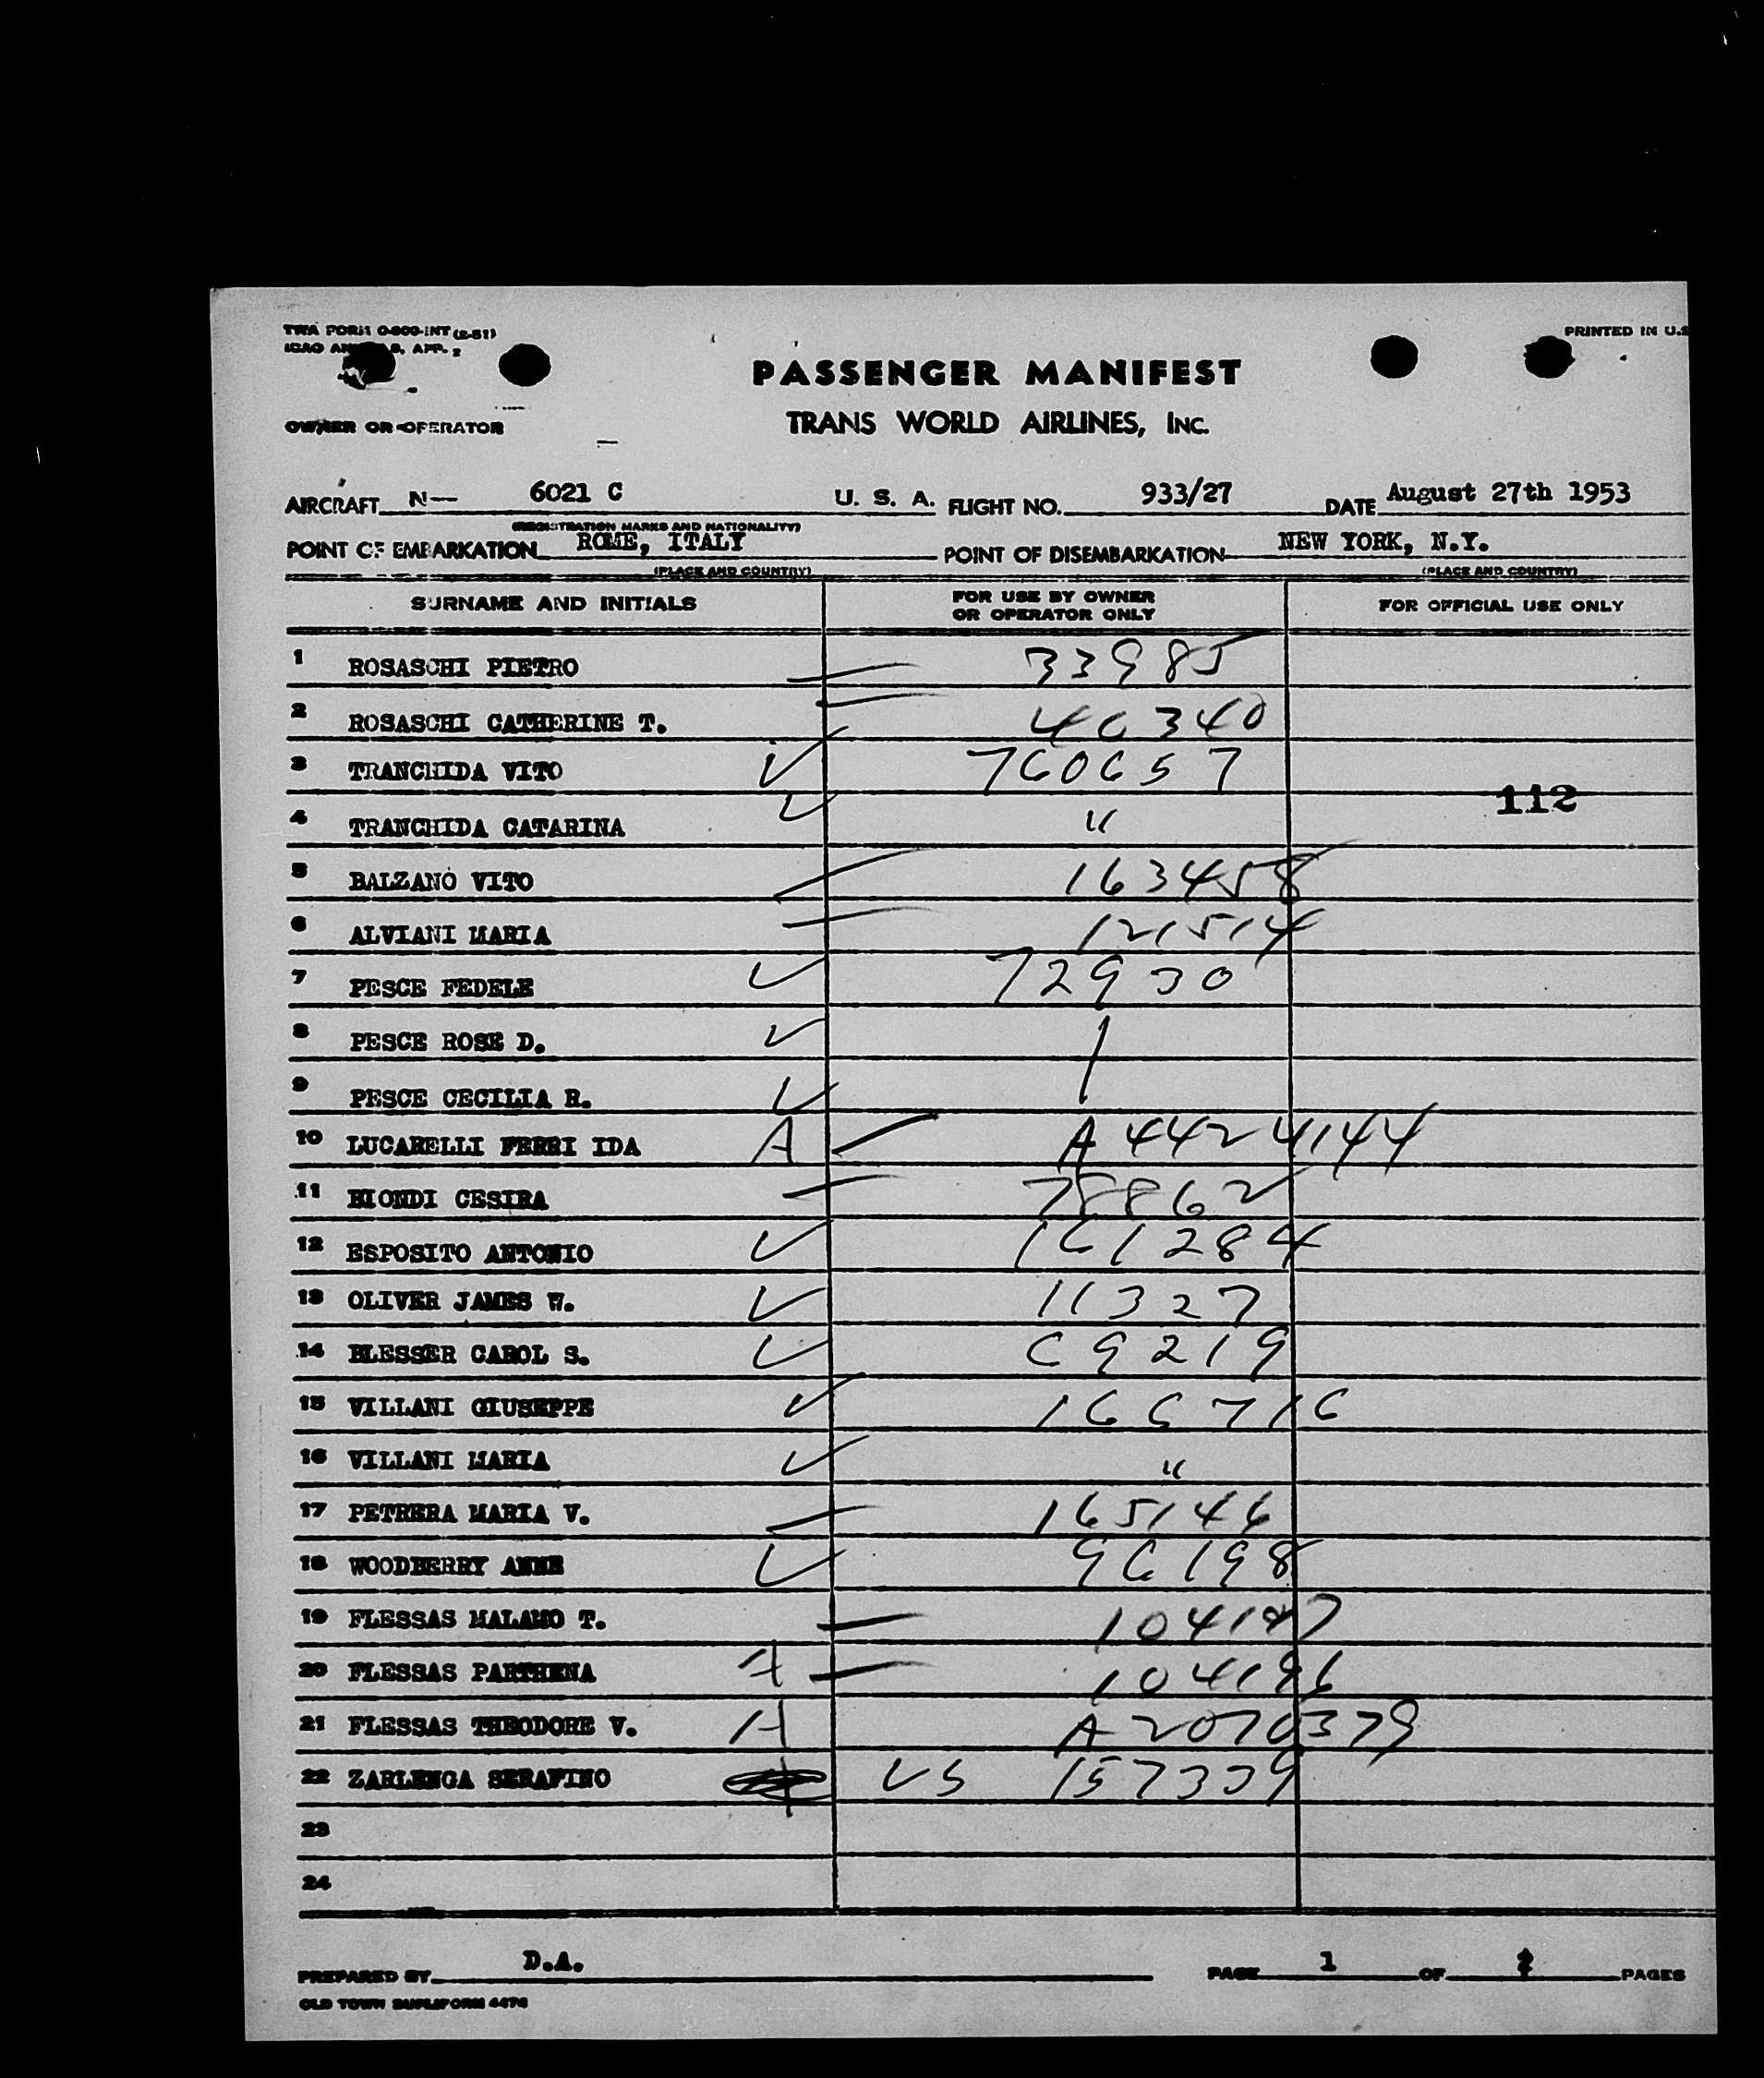 TWA FORM O-800-INT (2-51)
PRINTED IN U.S
ICAO AN 9, APP. 2
PASSENGER MANIFEST
OWNER OR OPERATOR
TRANS WORLD AIRLINES, INC.
AIRCRAFT N— 6021 C U. S. A. FLIGHT NO. 933/27 DATE August 27th 1953
(REGISTRATION MARKS AND NATIONALITY)
POINT OF EMBARKATION ROME, ITALY POINT OF DISEMBARKATION NEW YORK, N.Y.
(PLACE AND COUNTRY) (PLACE AND COUNTRY)
SURNAME AND INITIALS FOR USE BY OWNER OR OPERATOR ONLY FOR OFFICIAL USE ONLY
1 ROSASCHI PIETRO 33985
2 ROSASCHI CATHERINE T. 46340
3 TRANCHIDA VITO 760657
112
4 TRANCHIDA CATARINA "
5 BALZANO VITO 163458
6 ALVIANI MARIA 121514
7 PESCE FEDELE 72930
8 PESCE ROSE D.
9 PESCE CECILIA R.
10 LUCARELLI FERRI IDA A A4424144
11 BIONDI CESIRA 78862
12 ESPOSITO ANTONIO 161284
13 OLIVER JAMES W. 11327
14 BLESSER CAROL S. 69219
15 VILLANI GIUSEPPE 166716
16 VILLANI MARIA "
17 PETRERA MARIA V. 165146
18 WOODBERRY ANNE 96198
19 FLESSAS MALAMO T. 104197
20 FLESSAS PARTHENA A 104196
21 FLESSAS THEODORE V. A A2070379
22 ZARLENGA SERAFINO US 157339
23
24
PREPARED BY D.A. PAGE 1 OF PAGES
OLD TOWN DUPLIFORM 4476